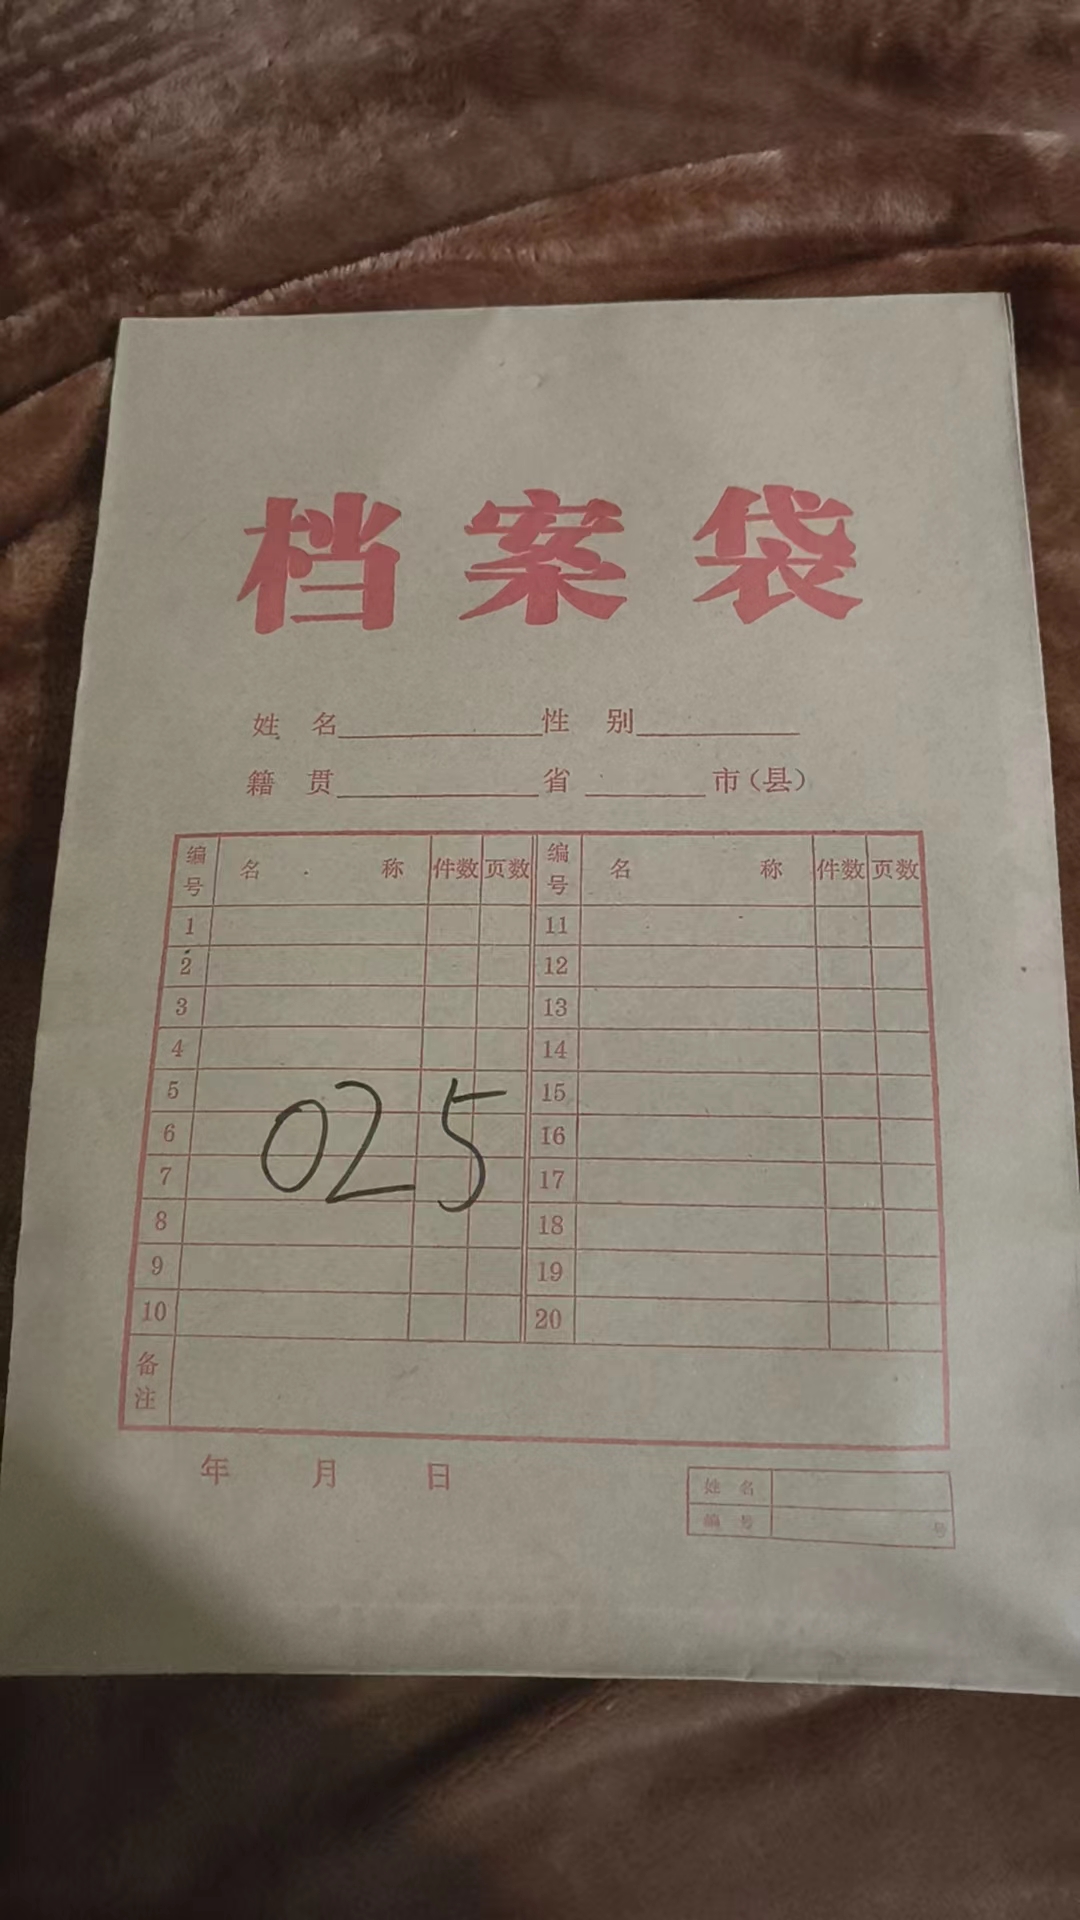 档案袋
姓 名________性 别________
籍 贯________省 ________市(县)
编号 名 称 件数 页数 编号 名 称 件数 页数
1 11
2 12
3 13
4 14
5 15
6 16
7 17
8 18
9 19
10 20
025
备注
年 月 日
姓 名
编 号 号